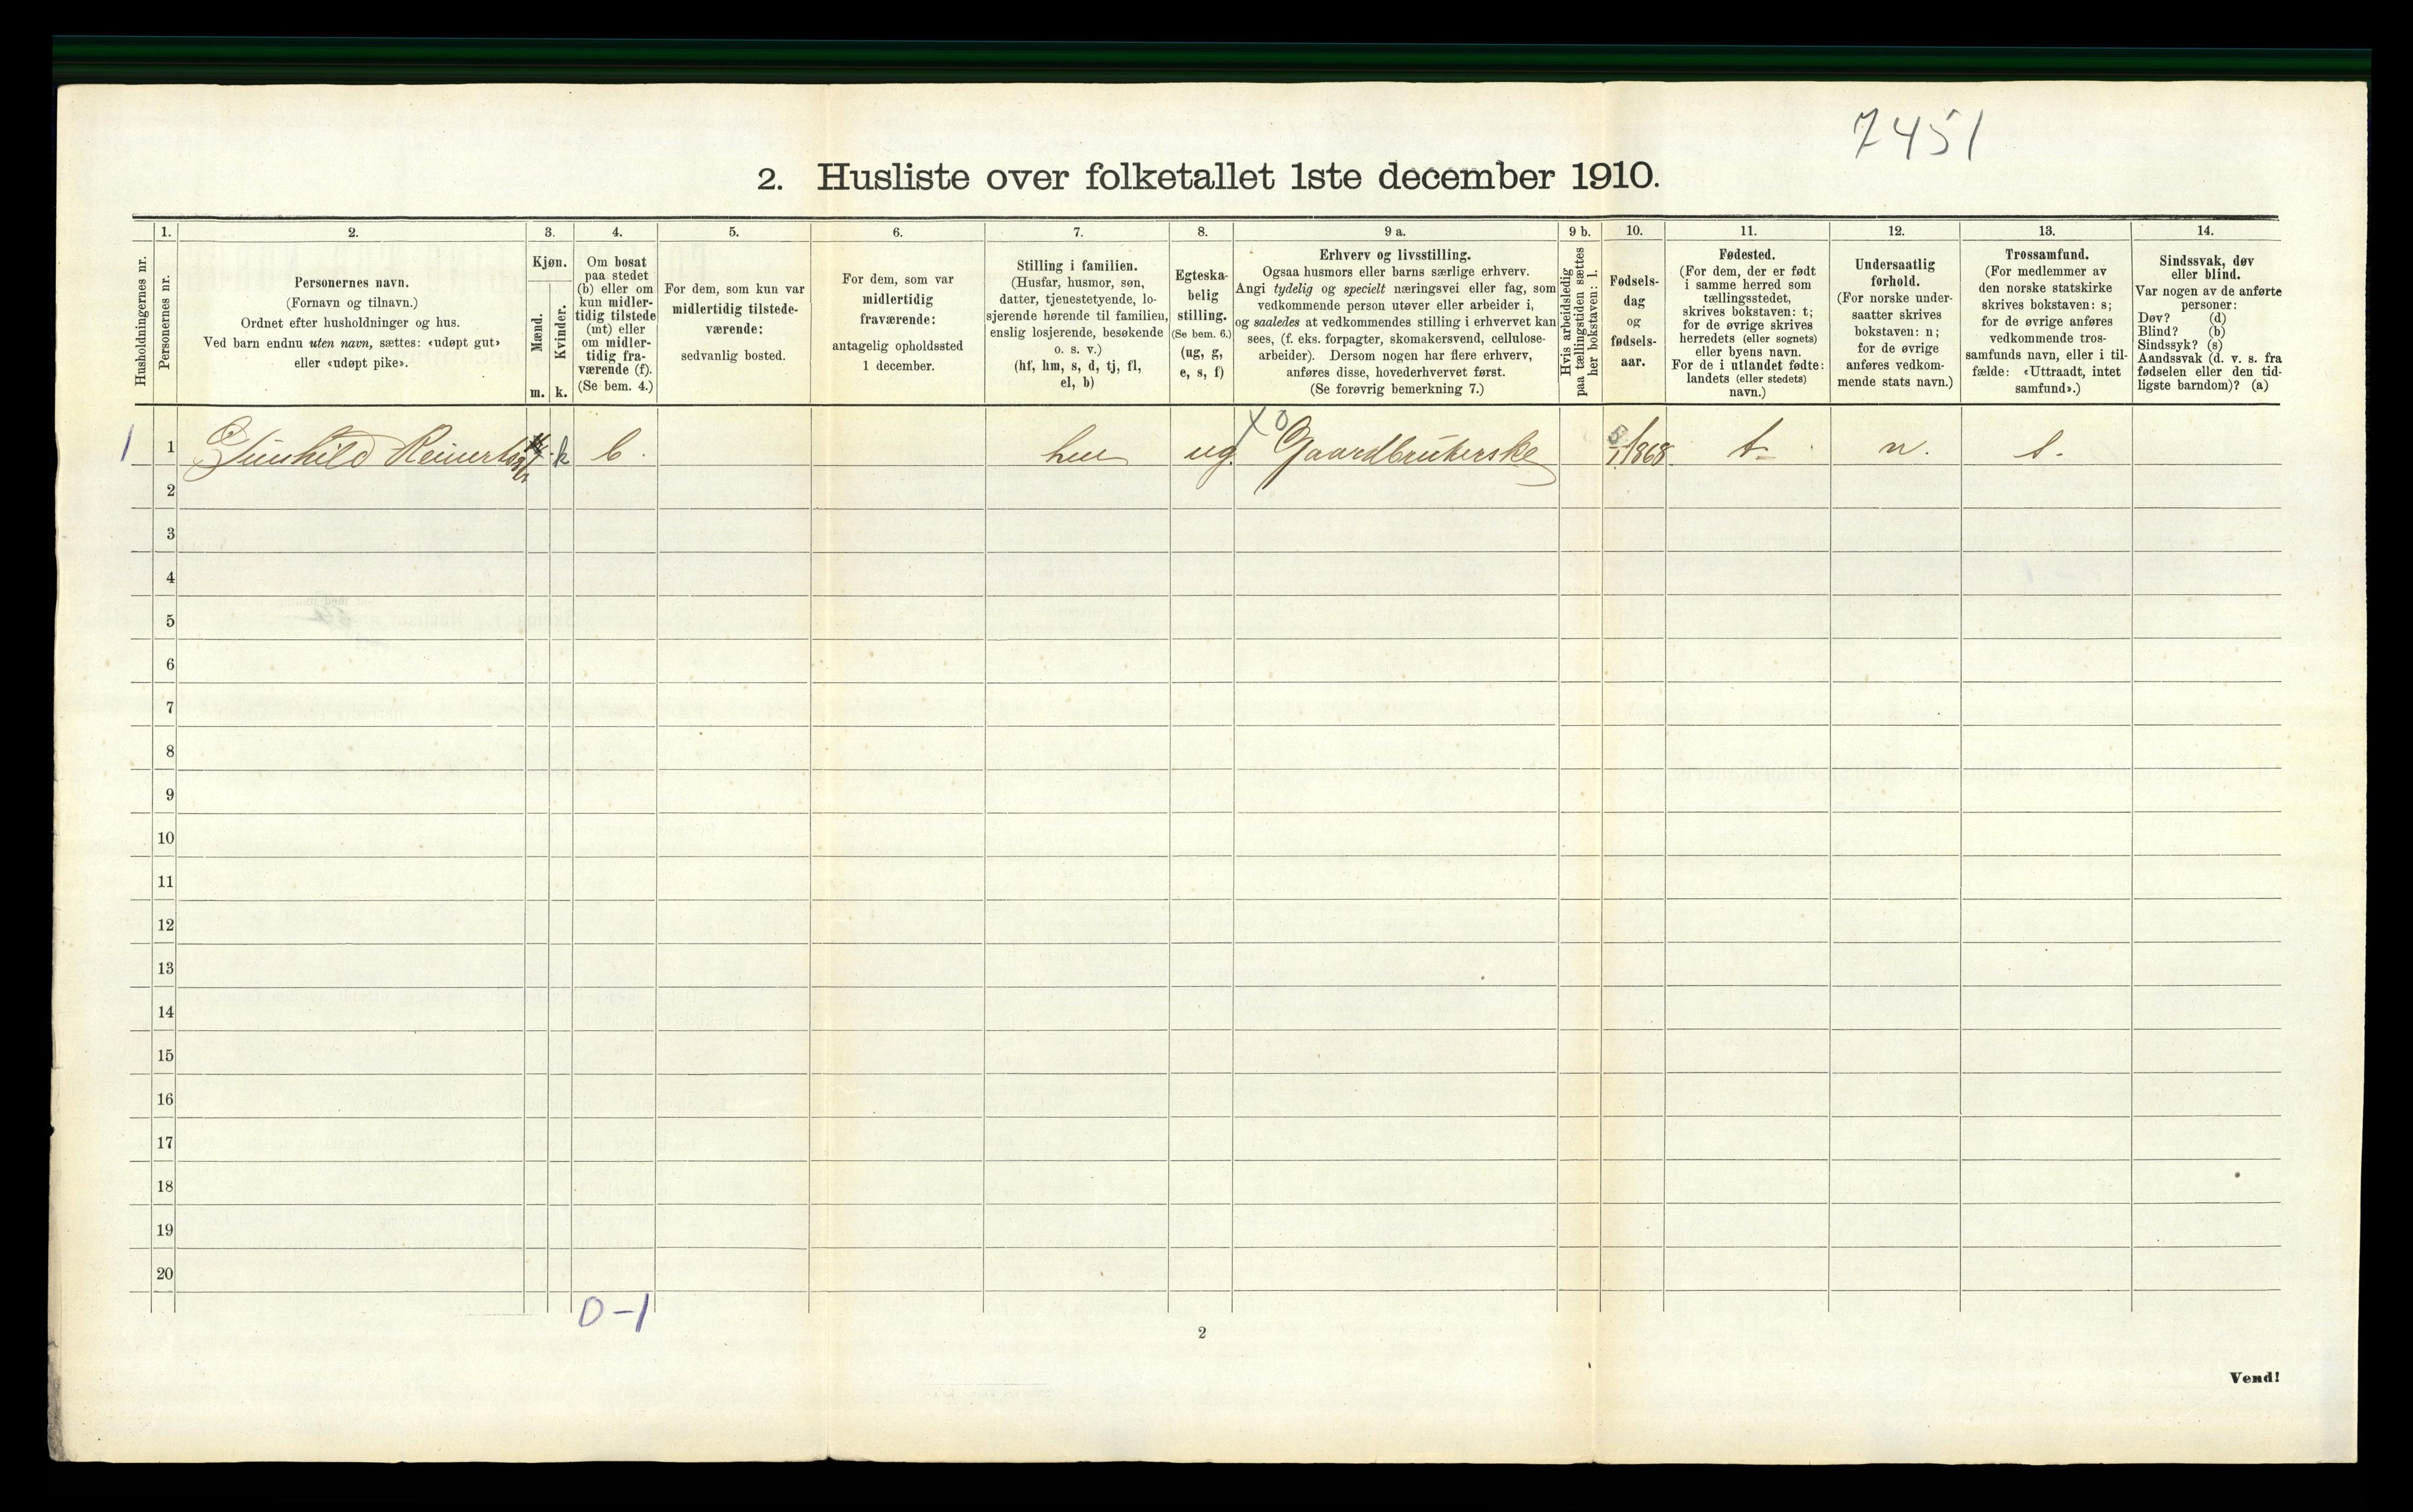 7451
2. Husliste over folketallet 1ste december 1910.
Husholdningernes nr.
1.
Personernes nr.
2.
Personernes navn.
(Fornavn og tilnavn.)
Ordnet efter husholdninger og hus.
Ved barn endnu uten navn, sættes: «udøpt gut»
eller «udøpt pike».
3.
Kjøn.
Mænd.
Kvinder.
m. k.
4.
Om bosat
paa stedet
(b) eller om
kun midler-
tidig tilstede
(mt) eller
om midler-
tidig fra-
værende (f).
(Se bem. 4.)
5.
For dem, som kun var
midlertidig tilstede-
værende:
sedvanlig bosted.
6.
For dem, som var
midlertidig
fraværende:
antagelig opholdssted
1 december.
7.
Stilling i familien.
(Husfar, husmor, søn,
datter, tjenestetyende, lo-
sjerende hørende til familien,
enslig losjerende, besøkende
o. s. v.)
(hf, hm, s, d, tj, fl,
el, b)
8.
Egteska-
belig
stilling.
(Se bem. 6.)
(ug, g,
e, s, f)
9 a.
Erhverv og livsstilling.
Ogsaa husmors eller barns særlige erhverv.
Angi tydelig og specielt næringsvei eller fag, som
vedkommende person utøver eller arbeider i,
og saaledes at vedkommendes stilling i erhvervet kan
sees, (f. eks. forpagter, skomakersvend, cellulose-
arbeider). Dersom nogen har flere erhverv,
anføres disse, hovederhvervet først.
(Se forøvrig bemerkning 7.)
9 b.
Hvis arbeidsledig
paa tællingstiden sættes
her bokstaven: l.
10.
Fødsels-
dag
og
fødsels-
aar.
11.
Fødested.
(For dem, der er født
i samme herred som
tællingsstedet,
skrives bokstaven: t;
for de øvrige skrives
herredets (eller sognets)
eller byens navn.
For de i utlandet fødte:
landets (eller stedets)
navn.)
12.
Undersaatlig
forhold.
(For norske under-
saatter skrives
bokstaven: n;
for de øvrige
anføres vedkom-
mende stats navn.)
13.
Trossamfund.
(For medlemmer av
den norske statskirke
skrives bokstaven: s;
for de øvrige anføres
vedkommende tros-
samfunds navn, eller i til-
fælde: «Uttraadt, intet
samfund».)
14.
Sindssvak, døv
eller blind.
Var nogen av de anførte
personer:
Døv? (d)
Blind? (b)
Sindssyk? (s)
Aandssvak (d. v. s. fra
fødselen eller den tid-
ligste barndom)? (a)
1 1 Gunhild k b. hm ug. X0 Gaardbrukerske 5/1 1868 t n. s.
2
3
4
5
6
7
8
9
10
11
12
13
14
15
16
17
18
19
20
0-1
2
Vend!